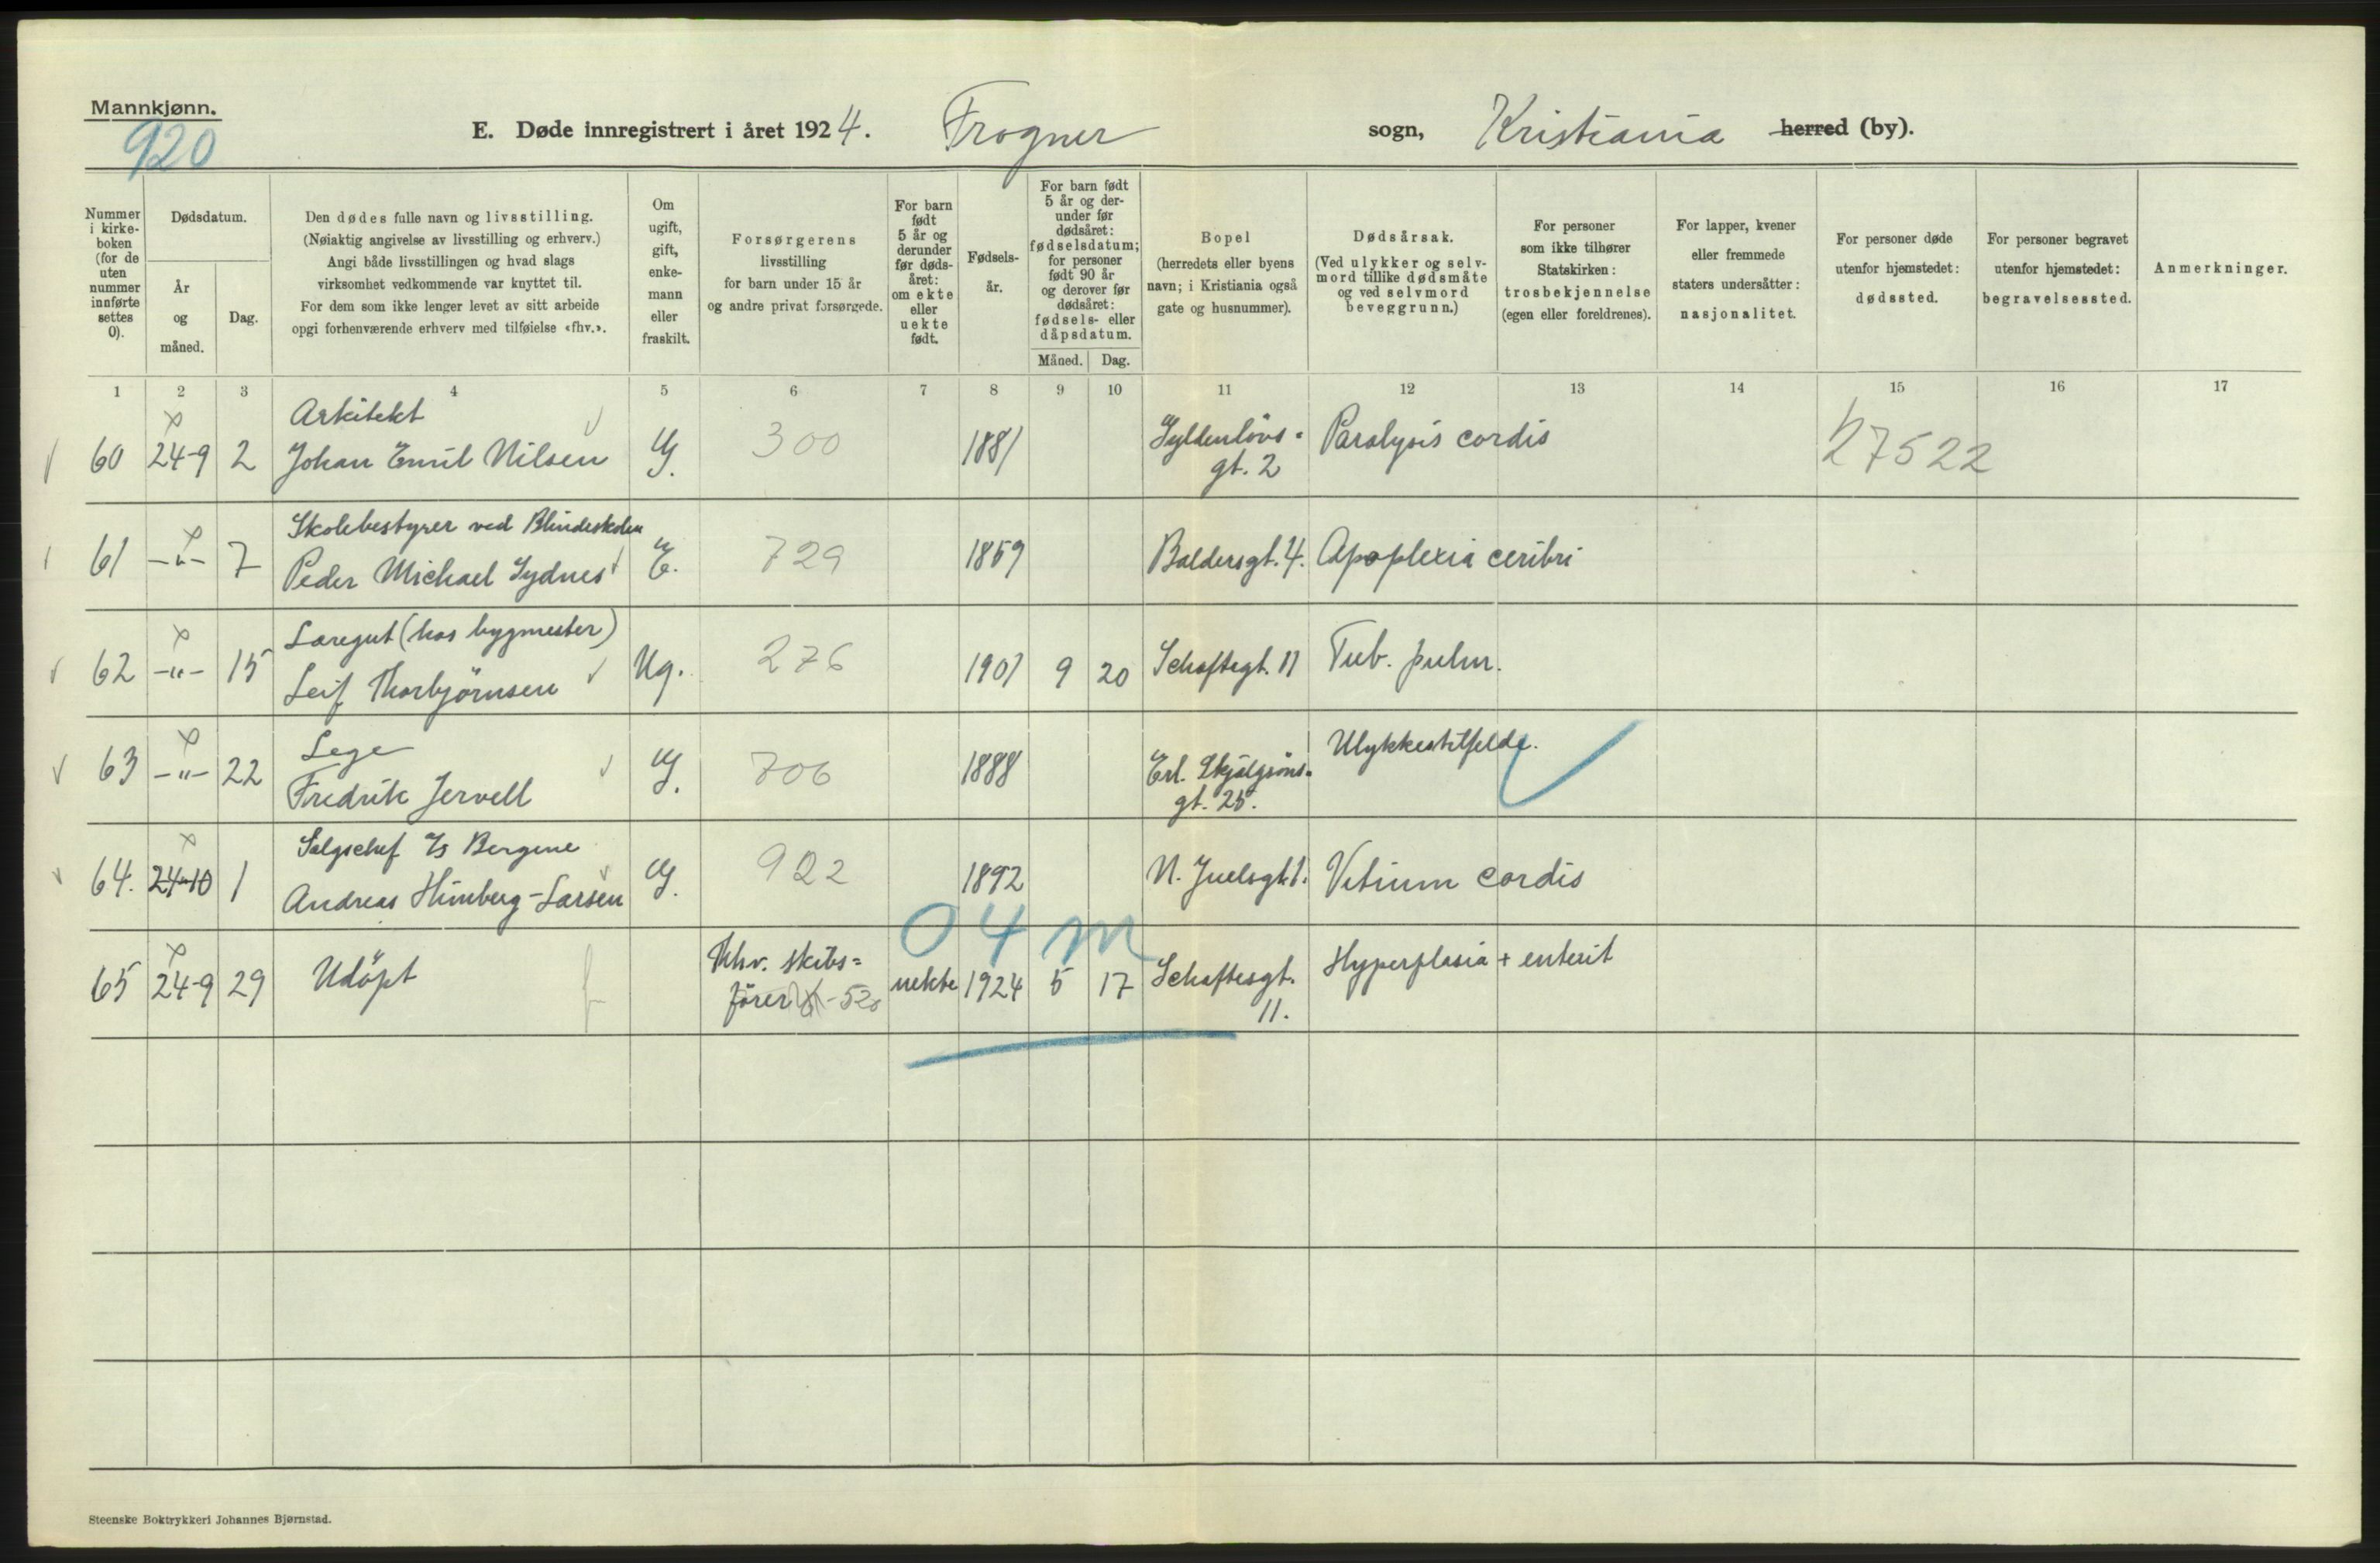 Mannkjønn.
920
E. Døde innregistrert i året 1924. Frogner sogn, Kristiania herred (by).
Nummer i kirke-boken (for de uten nummer innførte settes 0).
Dødsdatum.
År og måned.
Dag.
Den dødes fulle navn og livsstilling.
(Nøiaktig angivelse av livsstilling og erhverv.)
Angi både livsstillingen og hvad slags
virksomhet vedkommende var knyttet til.
For dem som ikke lenger levet av sitt arbeide
opgi forhenværende erhverv med tilføielse «fhv.».
Om ugift, gift, enke-mann eller fraskilt.
Forsørgerens
livsstilling
for barn under 15 år
og andre privat forsørgede.
For barn født 5 år og derunder før døds-året: om ekte eller uekte født.
Fødsels-år.
For barn født 5 år og der-under før dødsåret: fødselsdatum; for personer født 90 år og derover før dødsåret: fødsels- eller dåpsdatum.
Måned. Dag.
Bopel
(herredets eller byens
navn; i Kristiania også
gate og husnummer).
Dødsårsak.
(Ved ulykker og selv-
mord tillike dødsmåte
og ved selvmord
beveggrunn.)
For personer
som ikke tilhører
Statskirken:
trosbekjennelse
(egen eller foreldrenes).
For lapper, kvener
eller fremmede
staters undersåtter:
nasjonalitet.
For personer døde
utenfor hjemstedet:
dødssted.
For personer begravet
utenfor hjemstedet:
begravelsessted.
Anmerkninger.
1 2 3 4 5 6 7 8 9 10 11 12 13 14 15 16 17
Arkitekt
60 24-9 2 Johan Emil Nilsen G. 300 1881 Gyldenlövs-
gt. 2 Paralysis cordis 27522
Skolebestyrer ved Blindeskolen
61 -"- 7 Peder Michael Sydnes E. 729 1859 Baldersgt. 4. Apoplexia ceribri
Læregut (hos bygmester)
62 -"- 15 Leif Thorbjörnsen Ug. 276 1907 9 20 Schaftesgt. 11 Tub. pulm.
Lege
63 -"- 22 Fredrik Jervell G. 706 1888 Erl. Skjalgsöns-
gt. 25. Ulykkestilfelde.
Salgschef Bergene
64. 24-10 1 Andreas Himberg-Larsen G. 922 1892 N. Juelsgt. 1. Vitium cordis
04 m
65 24-9 29 Udöpt Uhv. skibs=
förer 520 uekte 1924 5 17 Schaftesgt.
11. Hyperplasia + enterit
Steenske Boktrykkeri Johannes Bjørnstad.